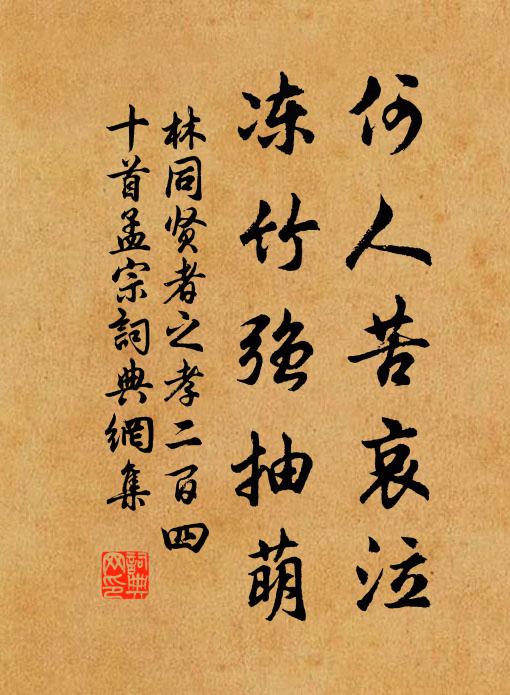 何人苦哀泣
冻竹强抽萌
林同贤者之孝二百四
十首孟宗詞典網集
詞典
网印